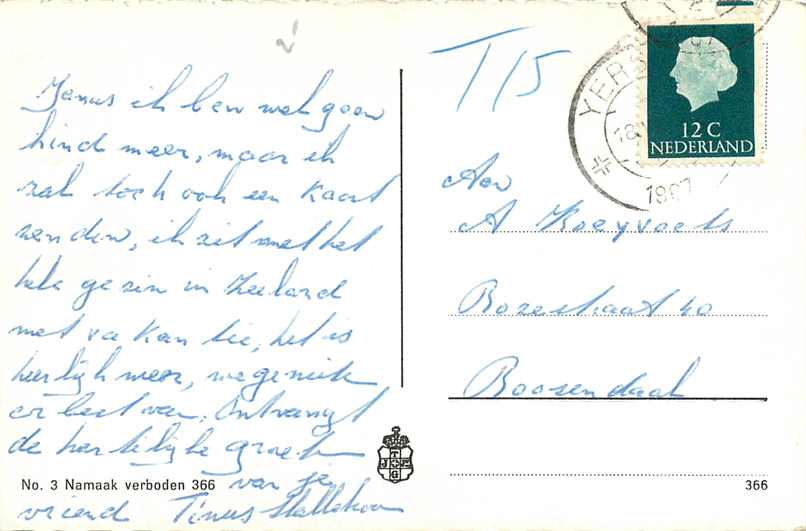 Janus ik ben wel geen
kind meer, maar ik
zal toch ook een kaart
zenden, ik zit met het
hele gezin in Zeeland
met vakantie, het is
heerlijk weer, we geniete
er best van, Ontvangt
de hartelijke groeten
van je
vriend Tinus
No. 3 Namaak verboden 366
T 15
YERS
18
1967
12 C
NEDERLAND
Aan
A Koeyvoets
Bozestraat 40
Roosendaal
T
J S
G
366